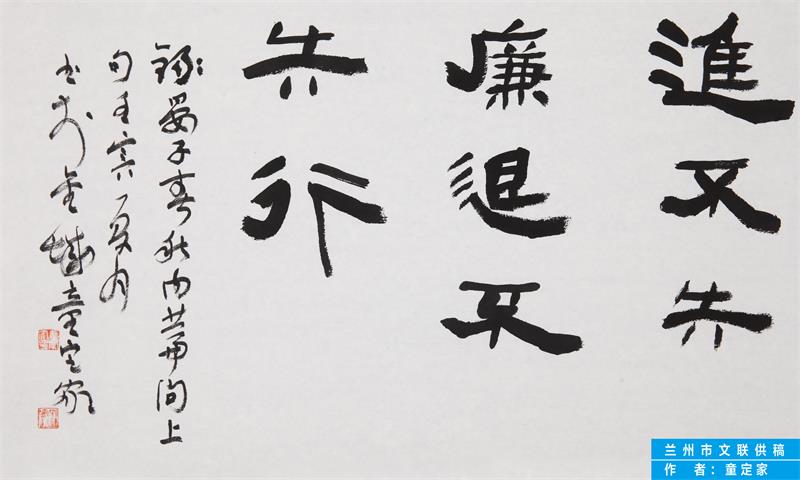 進不失
廉退不
失行
録晏子春秋内篇问上
句壬寅夏月
书於金城童定家
兰州市文联供稿
作 者：童定家